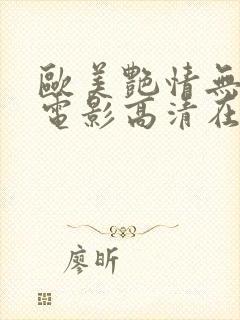 歐美艷情無
電影高清在
廖昕